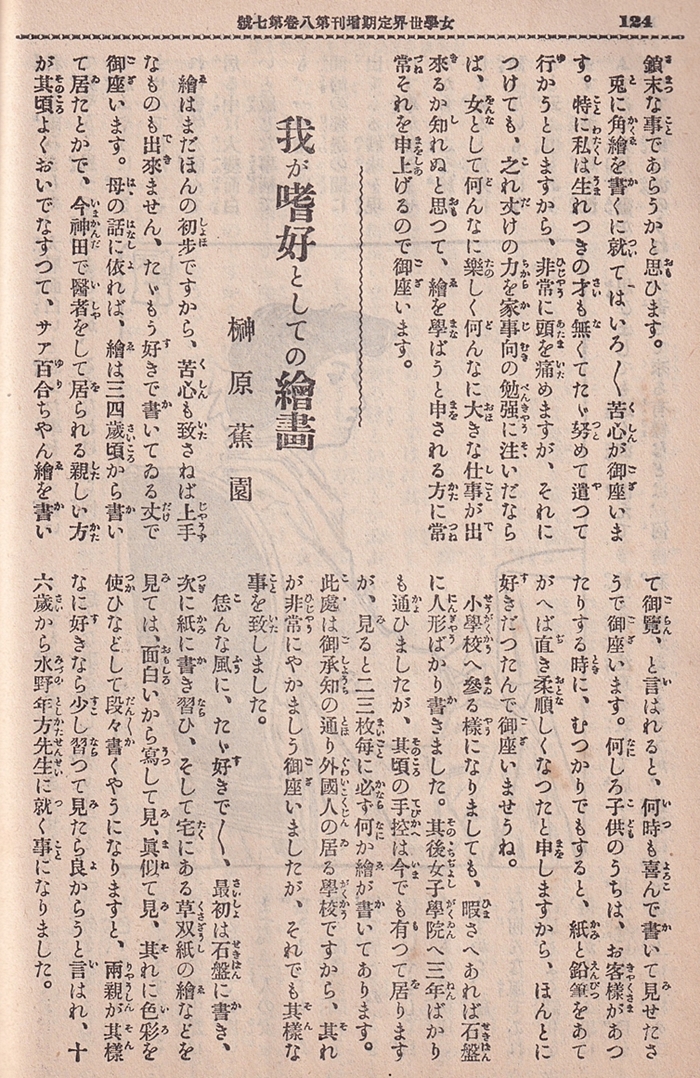 124
女學世界定期增刊第八卷第七號
鎖末な事であらうかと思ひます。
兎に角繪を書くに就てはいろ〱苦心が御座いま
す。特に私は生れつきの才も無くてたゞ努めて遣つて
行かうとしますから、非常に頭を痛めますが、それに
つけても、之れ丈けの力を家事向の勉强に注いだなら
ば、女として何んなに樂しく何んなに大きな仕事が出
來るか知れぬと思つて、繪を學ばうと申される方に常
常それを申上げるので御座います。
我が嗜好としての繪畫
榊原蕉園
繪はまだほんの初步ですから、苦心も致さねば上手
なものも出來ません、たゞもう好きで書いてゐる丈で
御座います。母の話に依れば、繪は三四歲頃から書い
て居たとかで、今神田で醫者をして居られる親しい方
が其頃よくおいでなすつて、サア百合ちやん繪を書い
て御覽、と言はれると、何時も喜んで書いて見せたさ
うで御座います。何しろ子供のうちは、お客樣があつ
たりする時に、むつかりでもすると、紙と鉛筆をあて
がへば直き柔順しくなつたと申しますから、ほんとに
好きだつたんで御座いませうね。
小學校へ參る樣になりましても、暇さへあれば石盤
に人形ばかり書きました。其後女子學院へ三年ばかり
も通ひましたが、其頃の手控は今でも有つて居ります
が、見ると二三枚每に必ず何か繪が書いてあります。
此處は御承知の通り外國人の居る學校ですから、其れ
が非常にやかましう御座いましたが、それでも其樣な
事を致しました。
恁んな風に、たゞ好きで〱、最初は石盤に書き、
次に紙に書き習ひ、そして宅にある草双紙の繪などを
見ては、面白いから寫して見、眞似て見、其れに色彩を
使ひなどして段々書くやうになりますと、兩親が其樣
なに好きなら少し習つて見たら良からうと言はれ、十
六歲から水野年方先生に就く事になりました。